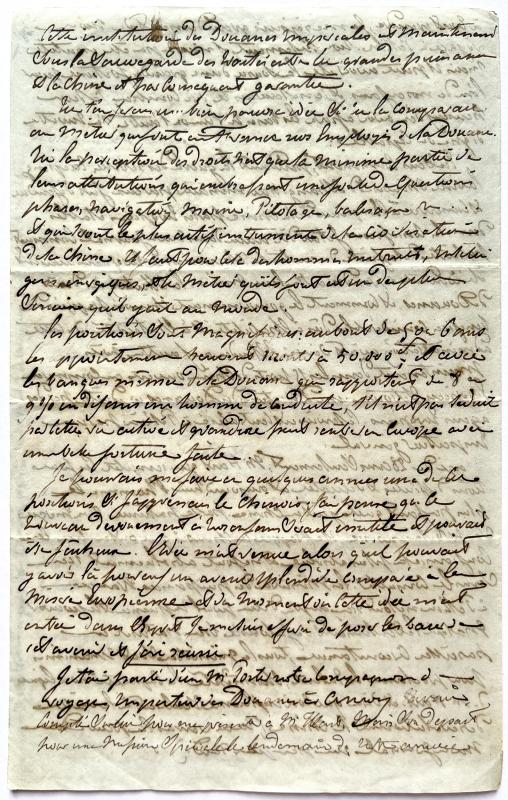 Cette institution des Douanes impériales est maintenant
sous la sauvegarde des traités entre les grandes puissances
et la Chine et par conséquent garantie.
Tu te ferais une bien pauvre idée si tu la comparais
au métier que font en France nos Employés de la Douane.
Ici la perception des droits n'est que la minime partie de
leurs attributions qui embrassent une foule de questions
phares, navigation, marine, Pilotage, balisage &
et qui sont le plus actif instrument de la civilisation
de la Chine. Il faut pour cela des hommes instruits, intelli
gents, énergiques, et le métier qu'ils font est un des plus
qu'il y ait au monde.
Les positions sont magnifiques, au bout de 5 ou 6 ans
les appointements peuvent monter à 50.000 f et avec
les banques même de la Douane qui rapportent de 8 à
un homme de conduite, s'il n'est pas séduit
par cette vie active et grandiose peut rentrer en Europe avec
une belle fortune faite.
Je pouvais me faire en quelques années une de ces
positions si j'apprenais le Chinois, j'ai pensé que le
nouveau dévouement à nos enfants serait inutile et pouvait
L'idée m'est venue alors qu'il pouvait
y avoir là pour eux un avenir splendide comparé à la
misère Européenne et du moment où cette idée m'est
entrée dans l'esprit je me suis efforcé de poser les bases de
cet avenir et j'ai réussi.
J'étais parti d'un Mr notre compagnon de
voyage, Inspecteur des Douanes à
pour me présenter à Mr Hart, mais son départ
pour une mission spéciale le lendemain de notre arrivée